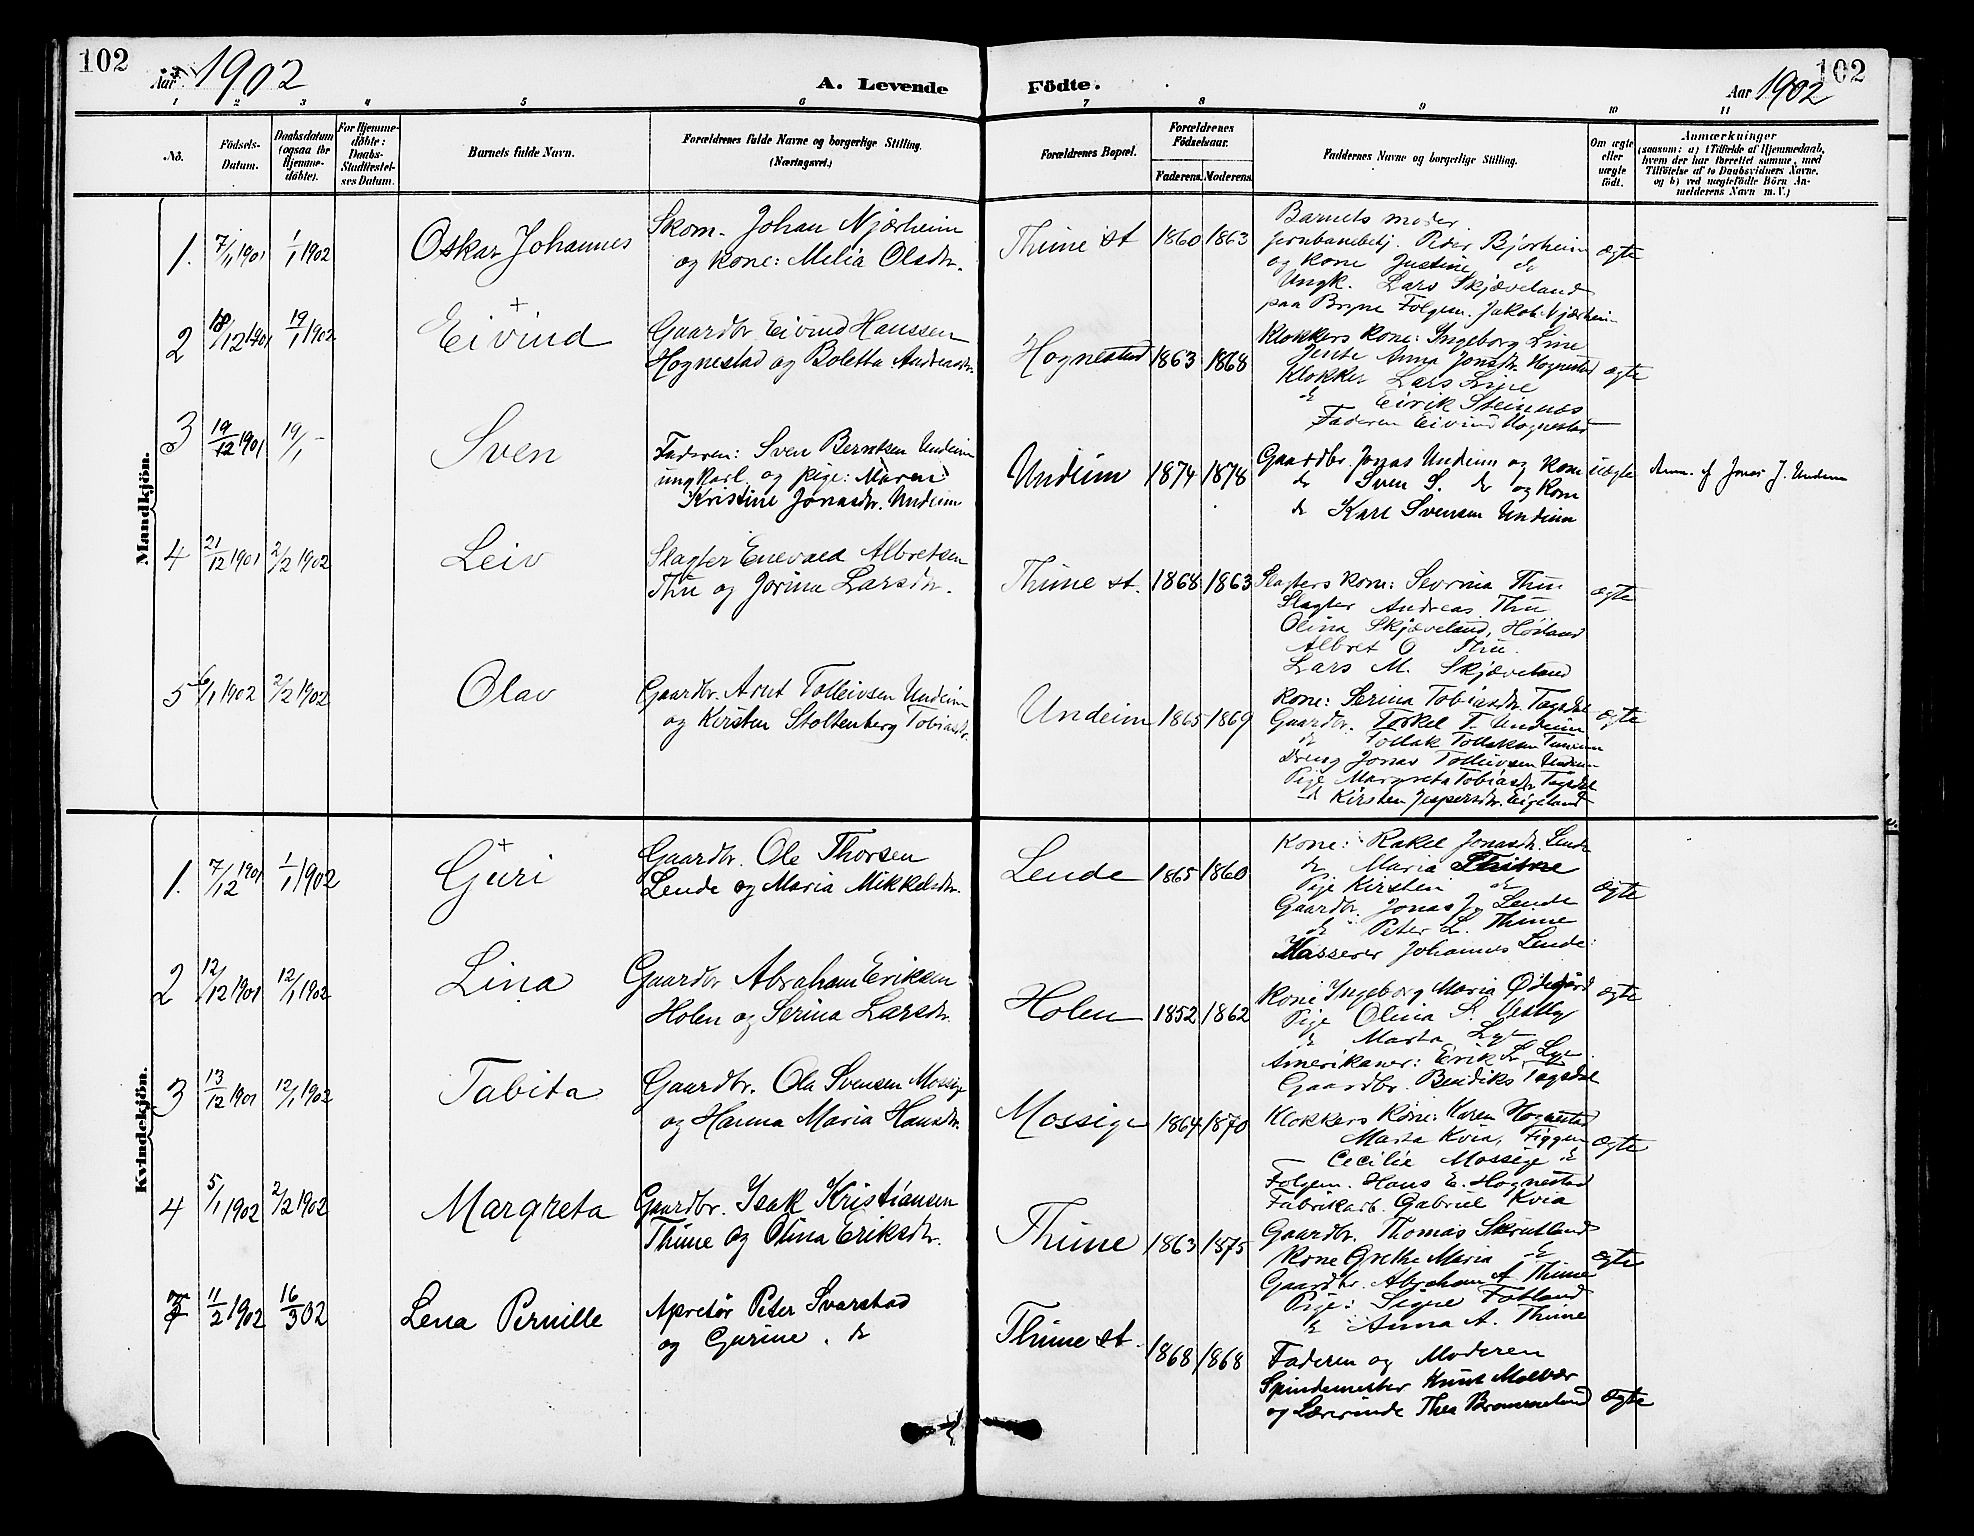 102
Aar 1902
A. Levende
Födte.
Aar 1902
102
1 2 3 4 5 6 7 8 9 10 11
No.
Födsels-Datum.
Daabsdatum (ogsaa for Hjemmedöbte).
For Hjemmedöbte: Daabs-Stadfæstelses Datum.
Barnets fulde Navn.
Forældrenes fulde Navne og borgerlige Stilling. (Næringsvei.)
Forældrenes Bopæl.
Forældrenes Födselsaar.
Faderens. Moderens.
Faddernes Navne og borgerlige Stilling.
Om ægte eller uægte födt.
Anmærkninger
(saasom: a) i Tilfælde af Hjemmedaab,
hvem der har forrettet samme, med
Tilföielse af to Daabsvidners Navne,
og b) ved uægtefödte Börn An-
melderens Navn m. V.)
Mandkjön.
1. 7/11901 1/1 1902
Oskar Johannes
Skom. Johan Njærheim
og kone: Melia Olsdtr.
Thime st 1860 1863
Barnets moder
jernbanebetj. Peder Bjorheim
og kone Justine do
Ungk. Lars Skjæveland
paa Bryne Folgem. Jakob Njærheim
ægte
2 18/12 1901 19/1 1902
+
Eivind
Gaardbr. Eivind Hanssen
Hognestad og Boletta Andreasdtr.
Hognestad 1863 1868
Klokkers kone: Ingeborg Line
Jente Anna Jonsdtr. Hognestad
Klokker Lars Line
do Eirik Steinnes
Faderen Eivind Hognestad
ægte
3 19/12 1901 19/1 -
Sven
Faderen: Sven Berntsen Undeim
ungkarl og pige: Maren
Kristine Jonasdtr. Undeim
Undeim 1874 1878
Gaardbr. Jonas Undeim og kone
do Sven S. do og kone
do Karl Svensen Undeim
uægte
Anm. af Jonas J. Undeim
4 21/12 1901 2/2 1902
Leiv
Slagter Enevald Albretsen
Thu og Jorina Larsdtr.
Thime st. 1868 1863
Slagters kone: Sevrina Thu
Slagter Andreas Thu
Olina Skjæveland, Höiland
Albret O Thu.
Lars M. Skjæveland
ægte
5 6/1 1902 2/2 1902
Olav
Gaardbr. Arnt Tolleivsen Undeim
og Kirsten Stoltenberg Tobiasdtr.
Undeim 1865 1869
kone: Serina Tobiasdtr. Tagsdal
Gaardbr. Torkel T. Undeim
do Tollak Tollaksen
Dreng Jonas Tolleivsen Undeim
Pige Margreta Tobiasdtr. Tagsdal
do Kirsten Jespersdtr. Eigeland
ægte
Kvindekjön.
1. 7/12 1901 1/1 1902
+
Guri
Gaardbr. Ole Thorsen
Lende og Maria Mikkelsdtr.
Lende 1865 1860
Kone: Rakel Jonasdtr. Lende
do Maria Thime
Pige Kirsten do
Gaardbr. Jonas J. Lende
do Peter L. Thime
Kasserer Johannes Lende.
ægte
2 12/12 1901 12/1 1902
Lina
Gaardbr Abraham Eriksen
Holen og Serina Larsdtr.
Holen 1852 1862
Kone Ingeborg Maria Ødegård
Pige Olina S. Vestly
do Marta Lye
Amerikaner: Erik L. Lye
Gaardbr. Bendik Tagsdal
ægte
3 13/12 1901 12/1 1902
Tabita
Gaardbr. Ole Svensen Mossige
og Hanna Maria Hansdtr.
Mossige 1864 1870
Klokkers Kone: Karen Hognestad
Marta Kvia, Figgen
Cecilie Mossige do
Folgem. Hans E. Hognestad
Fabrikarb. Gabriel Kvia
ægte
4 5/1 1902 2/2 1902
Margreta
Gaardbr. Isak Kristiansen
Thime og Olina Eriksdtr.
Thime 1863 1875
Gaardbr. Thomas Skrudland
Kone Grethe Maria do
Gaardbr. Abraham A Thime
Pige: Signe Fotland
do Anna A. Thime
ægte
5 11/2 1902 16/3 02
Lena Pernille
Apretør Peter Svarstad
og Gurine. do
Thime st. 1868 1868
Faderen og Moderen
Spindemester Knut Molvær
og Lærerinde Thea Brommeland
ægte